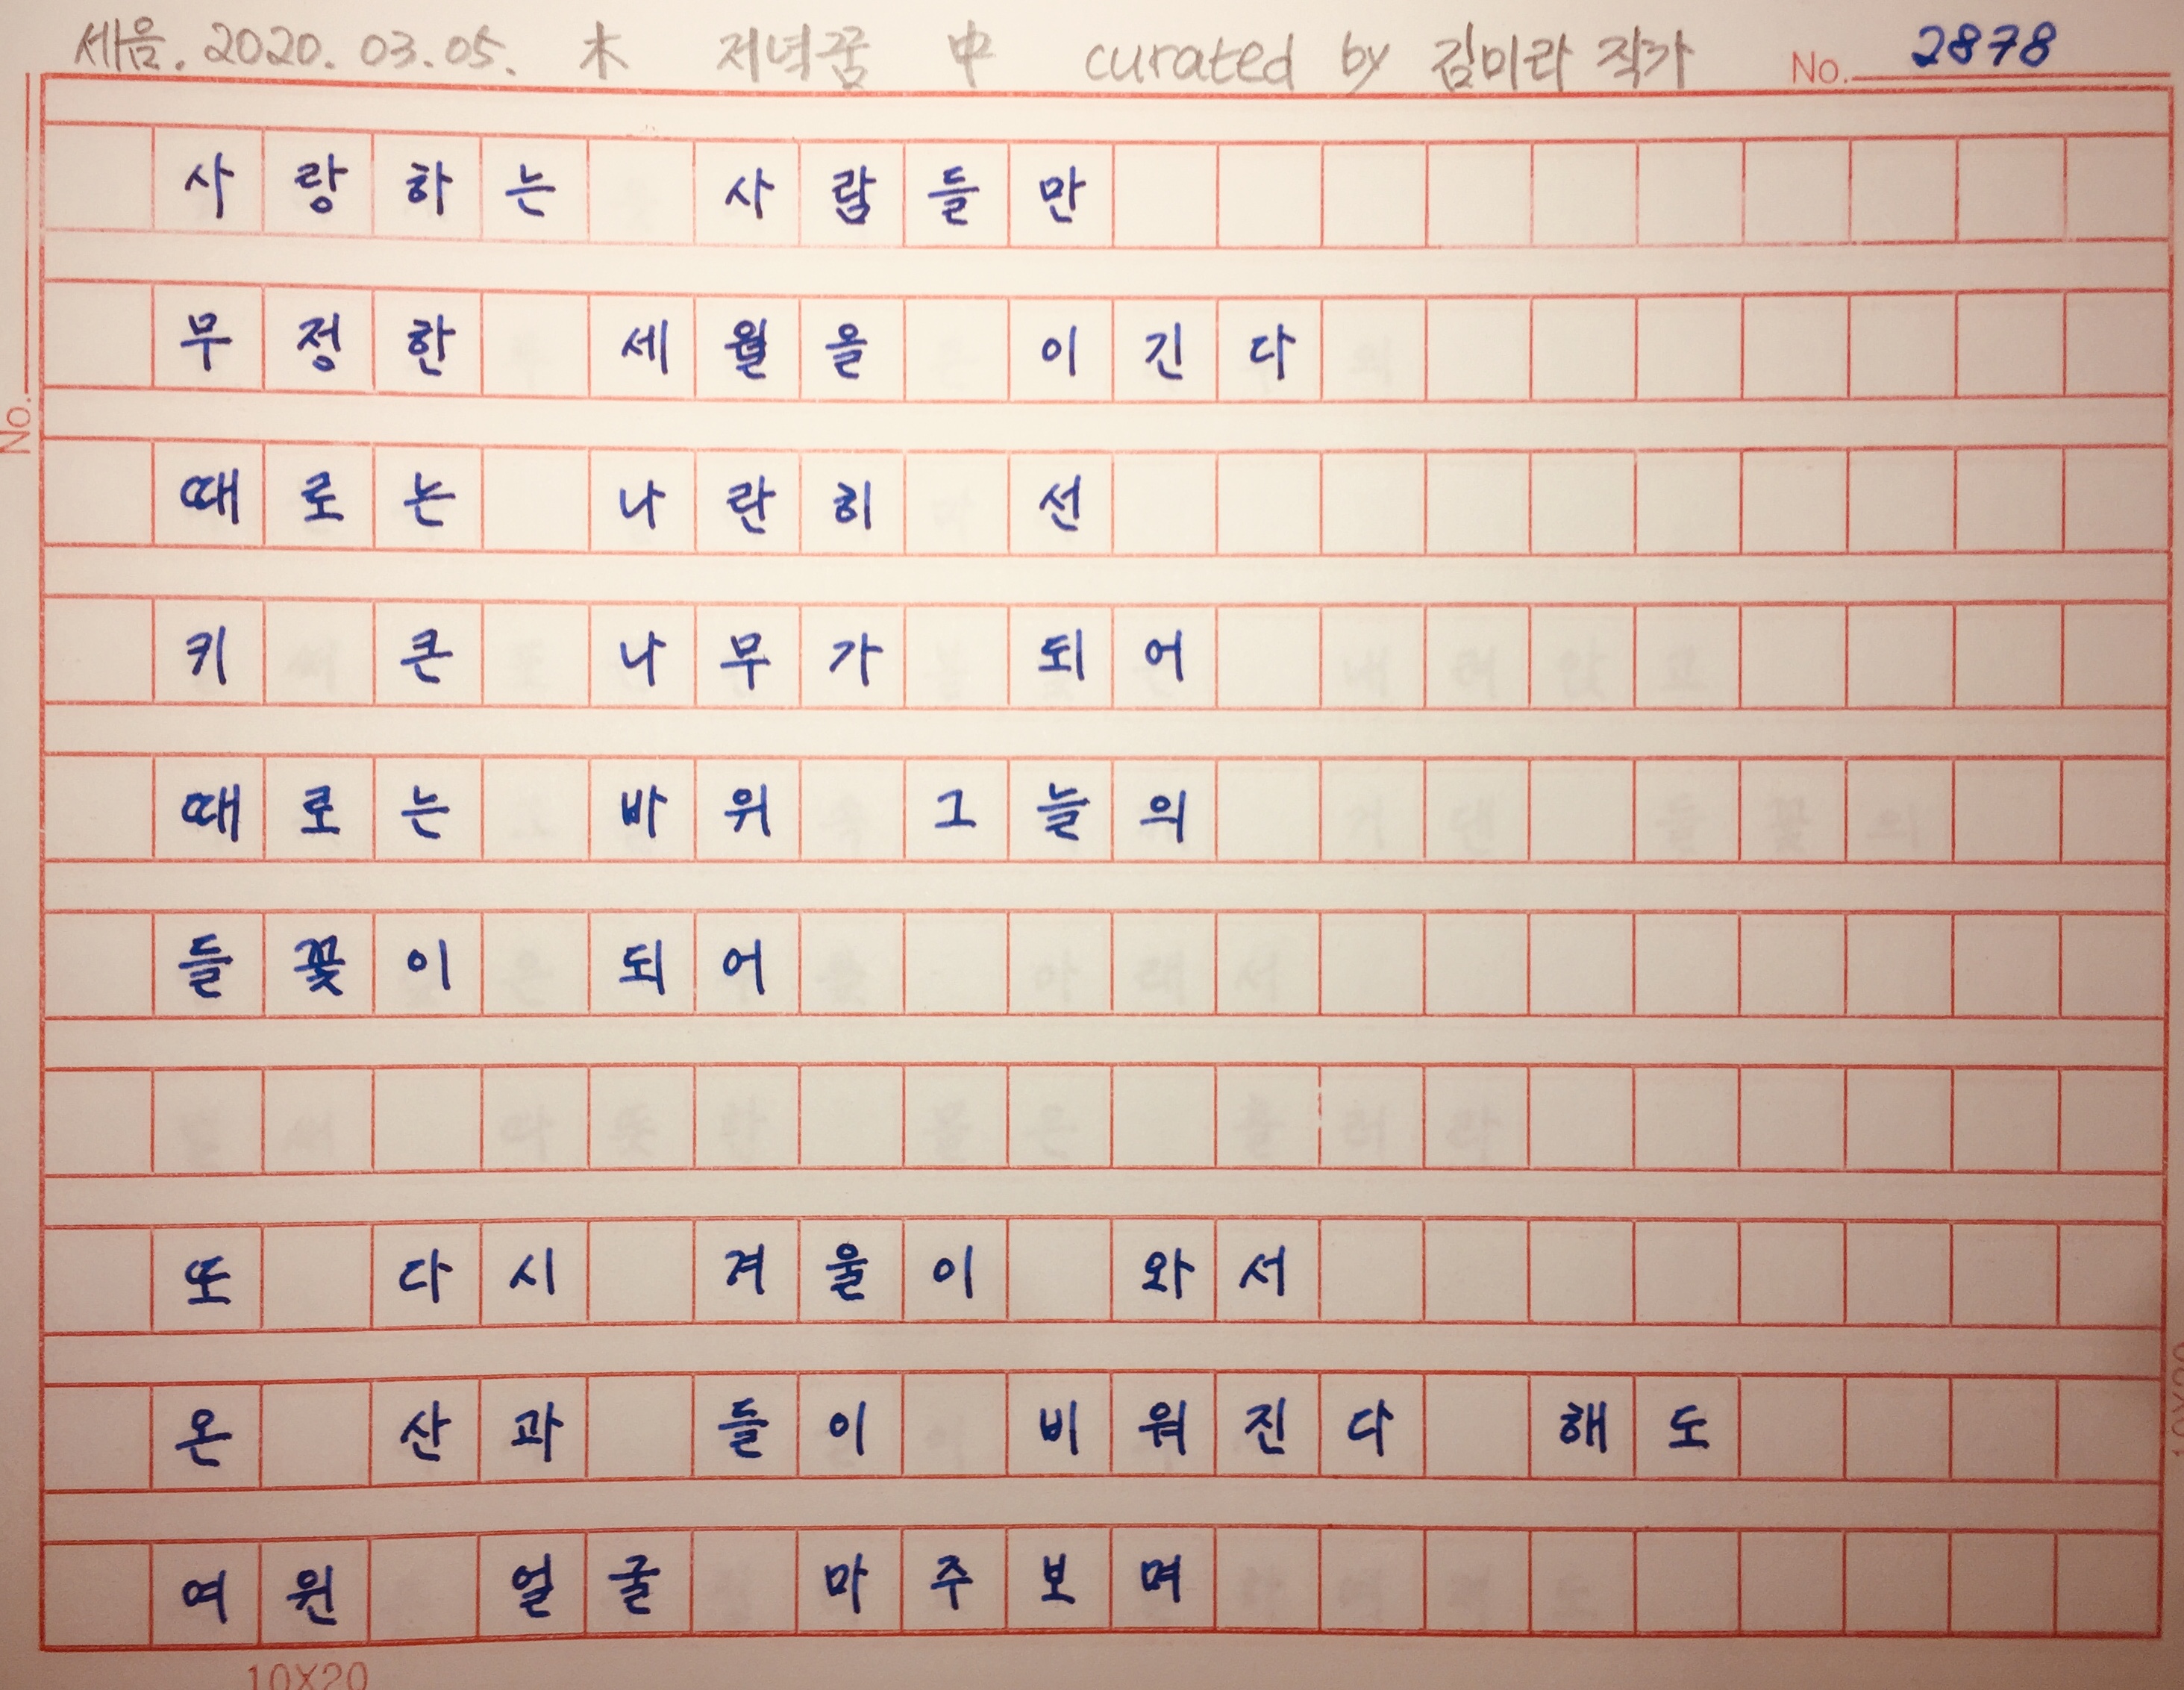 세음. 2020. 03. 05. 木 저녁꿈 中 curated by 김미라 작가 No. 2878
사랑하는 사람들만
무정한 세월을 이긴다
때로는 나란히 선
키 큰 나무가 되어
때로는 바위 그늘의
들꽃이 되어
또 다시 겨울이 와서
온 산과 들이 비워진다 해도
여윈 얼굴 마주보며
No.
10X20